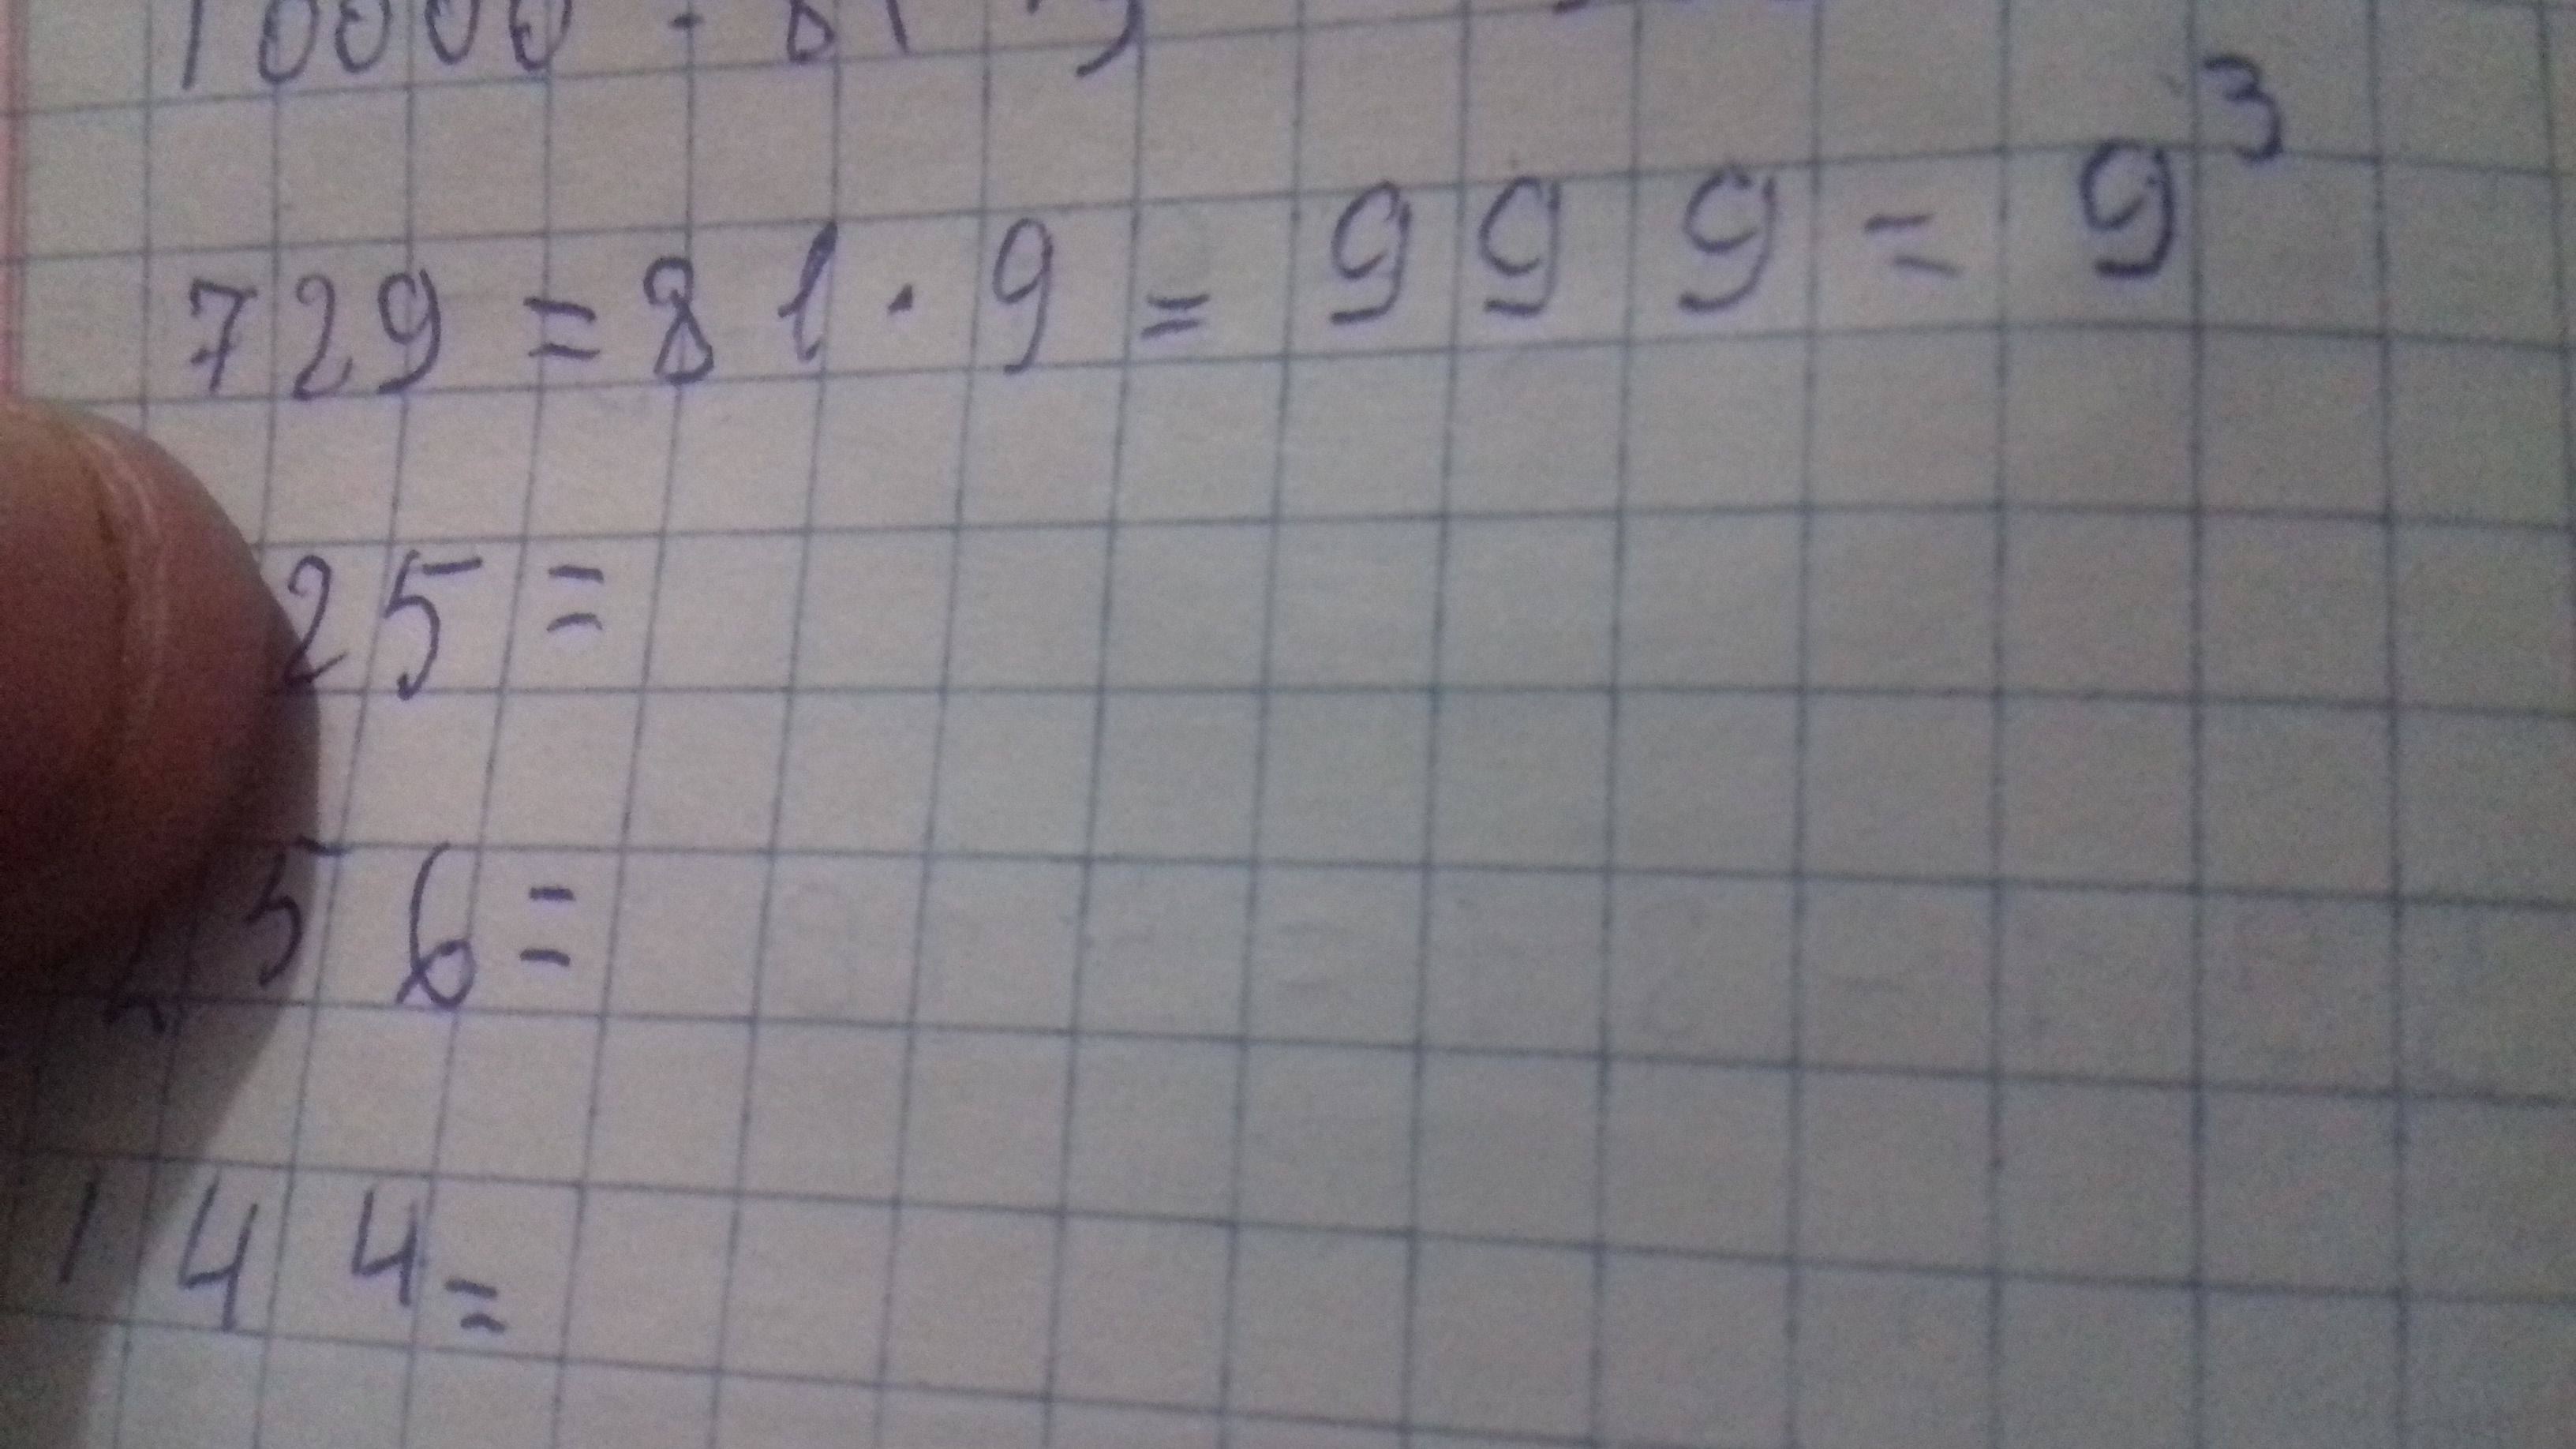 10000
729 = 81 · 9 = 9 9 9 = 9³
25 =
256 =
144 =